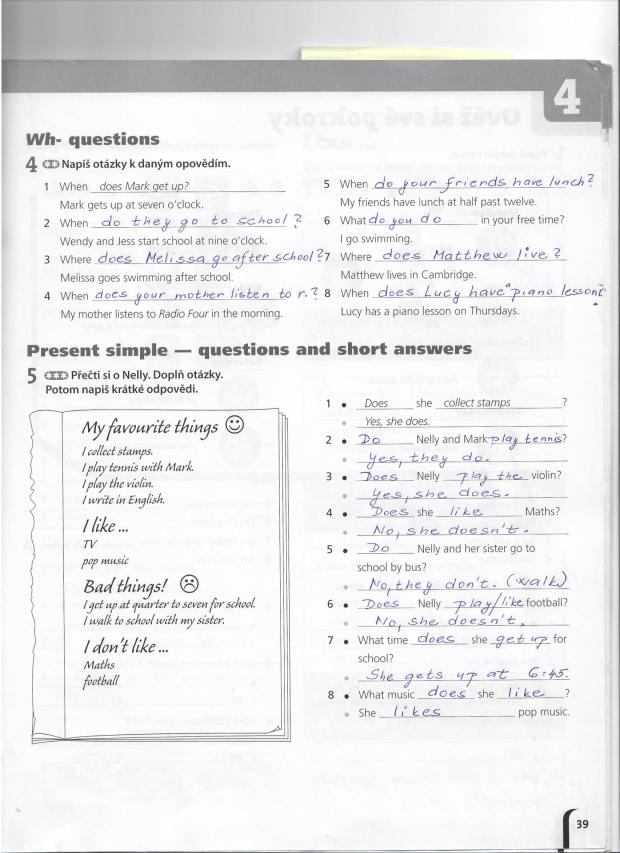 4
Wh- questions
4 Napiš otázky k daným opovědím.
1 When does Mark get up?
Mark gets up at seven o'clock.
2 When do they go to school?
Wendy and Jess start school at nine o'clock.
3 Where does Melissa go after school?
Melissa goes swimming after school.
4 When does your mother listen to r.?
My mother listens to Radio Four in the morning.
5 When do your friends have lunch?
My friends have lunch at half past twelve.
6 What do you do in your free time?
I go swimming.
7 Where does Matthew live?
Matthew lives in Cambridge.
8 When does Lucy have a piano lesson?
Lucy has a piano lesson on Thursdays.
Present simple — questions and short answers
5 Přečti si o Nelly. Doplň otázky.
Potom napiš krátké odpovědi.
My favourite things
I collect stamps.
I play tennis with Mark.
I play the violin.
I write in English.
I like ...
TV
pop music
Bad things!
I get up at quarter to seven for school.
I walk to school with my sister.
I don't like ...
Maths
football
1 • Does she collect stamps ?
• Yes, she does.
2 • Do Nelly and Mark play tennis?
• Yes, they do.
3 • Does Nelly play the violin?
• Yes, she does.
4 • Does she like Maths?
• No, she doesn't.
5 • Do Nelly and her sister go to
school by bus?
• No, they don't. (walk)
6 • Does Nelly play/like football?
• No, she doesn't.
7 • What time does she get up for
school?
• She gets up at 6:45.
8 • What music does she like ?
• She likes pop music.
39